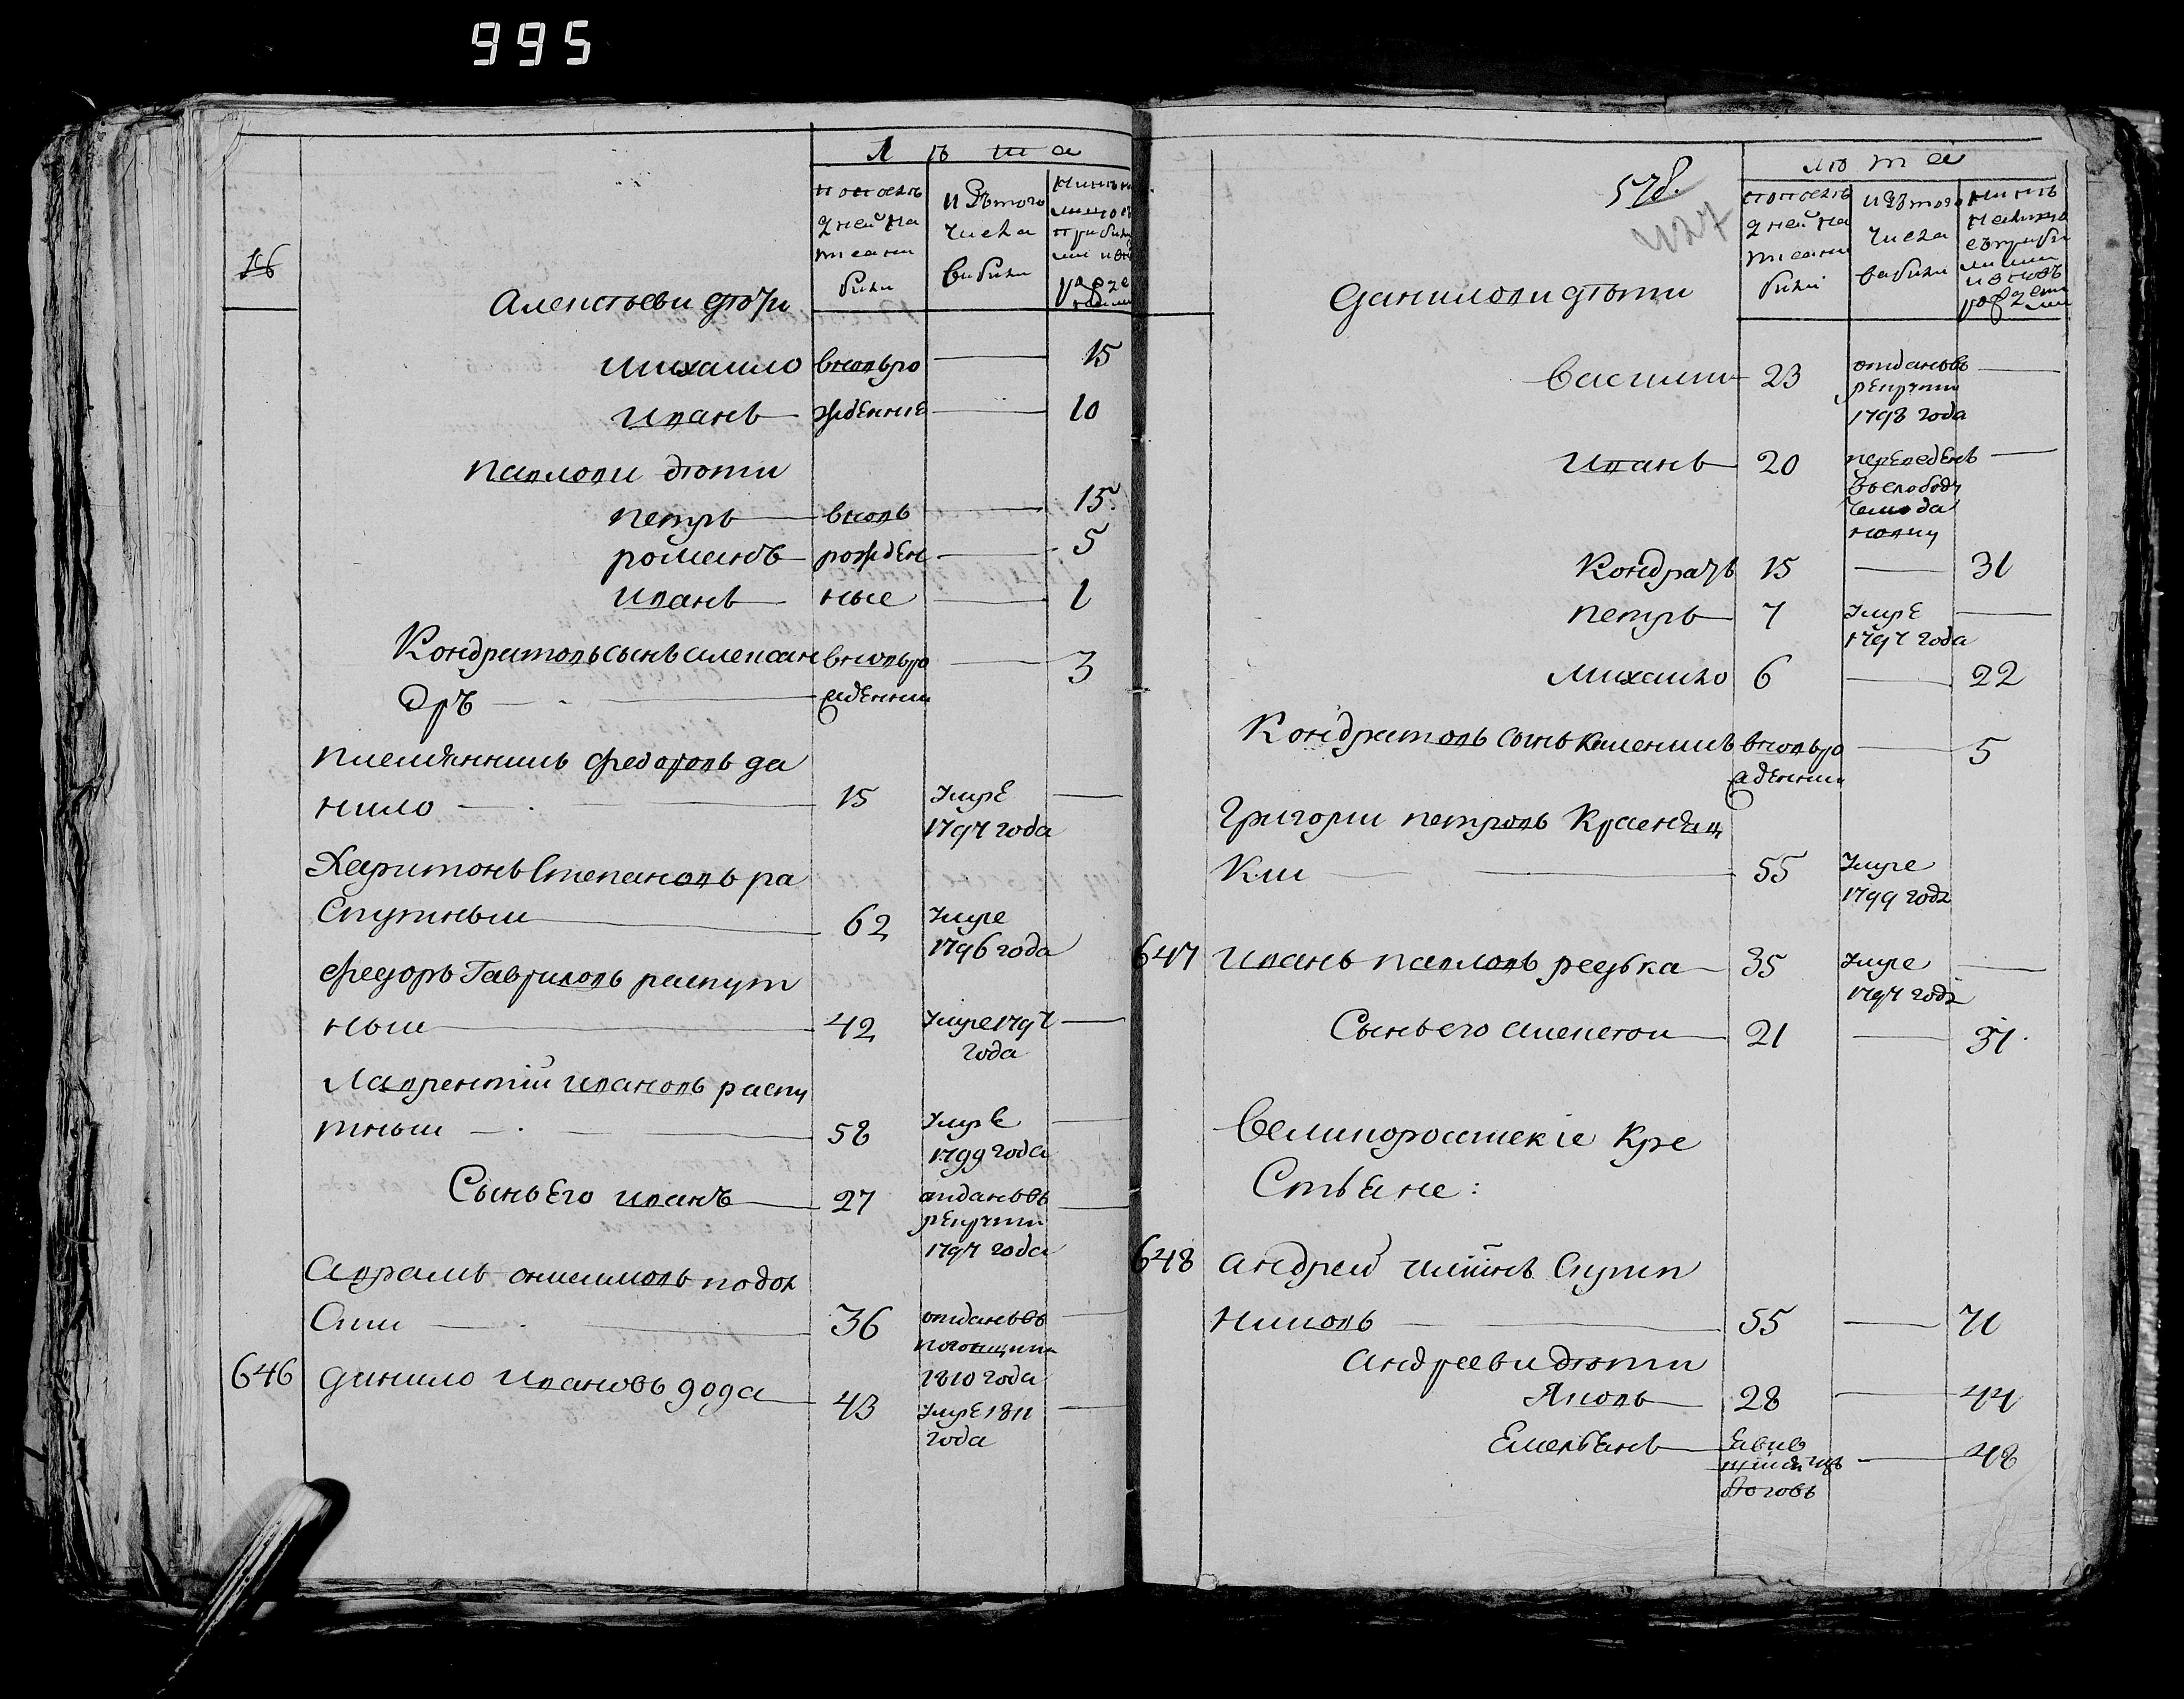 995
Л ѣ та
№
по послѣ
дней ре
визіи
были
изъ того
числа
выбыли
Алексѣевы дѣти
Михайло вновь ро — 15
Иванъ жденные — 10
Павловы дѣти
Петръ вновь — 15
романъ рожден — 5
Иванъ ные — 1
Кондратовъ сынъ Алексан вновь ро — 3
дръ жденный
племянникъ Федоровъ да
нило 15 умре —
1797 года
Харитонъ Степановъ ра
спутный 62 умре
1796 года
Федоръ Гавриловъ распут
ный 42 умре 1797 —
года
Лаврентій Ивановъ распу
тный 58 умре —
1799 года
Сынъ Его Иванъ 27 отданъ въ —
рекруты
1797 года
Аврамъ Анисимовъ подол
 36 отданъ въ —
погонщики
1810 года
646 Данило Ивановъ дода 43 умре 1811 —
года
578.
лѣ та
изъ того
числа
выбыли
Даниловы дѣти
Василий 23 отданъ въ —
рекруты
1798 года
Иванъ 20 переведенъ —
въ слободу
Кондратъ 15 — 31
Петръ 7 умре —
1797 года
Михайло 6 — 22
Кондратовъ сынъ Каленикъ вновь ро — 5
жденный
Григорий петровъ
кий 55 умре
1799 года
647 Иванъ павловъ редька 35 умре —
1797 года
Сынъ его Алексѣй 21 — 37.
Великороссийскіе Кре
стьяне:
648 Андрей
никовъ 55 — 71
Андреевы дѣти
Яковъ 28 — 44
Емельянъ — 48
бѣговъ